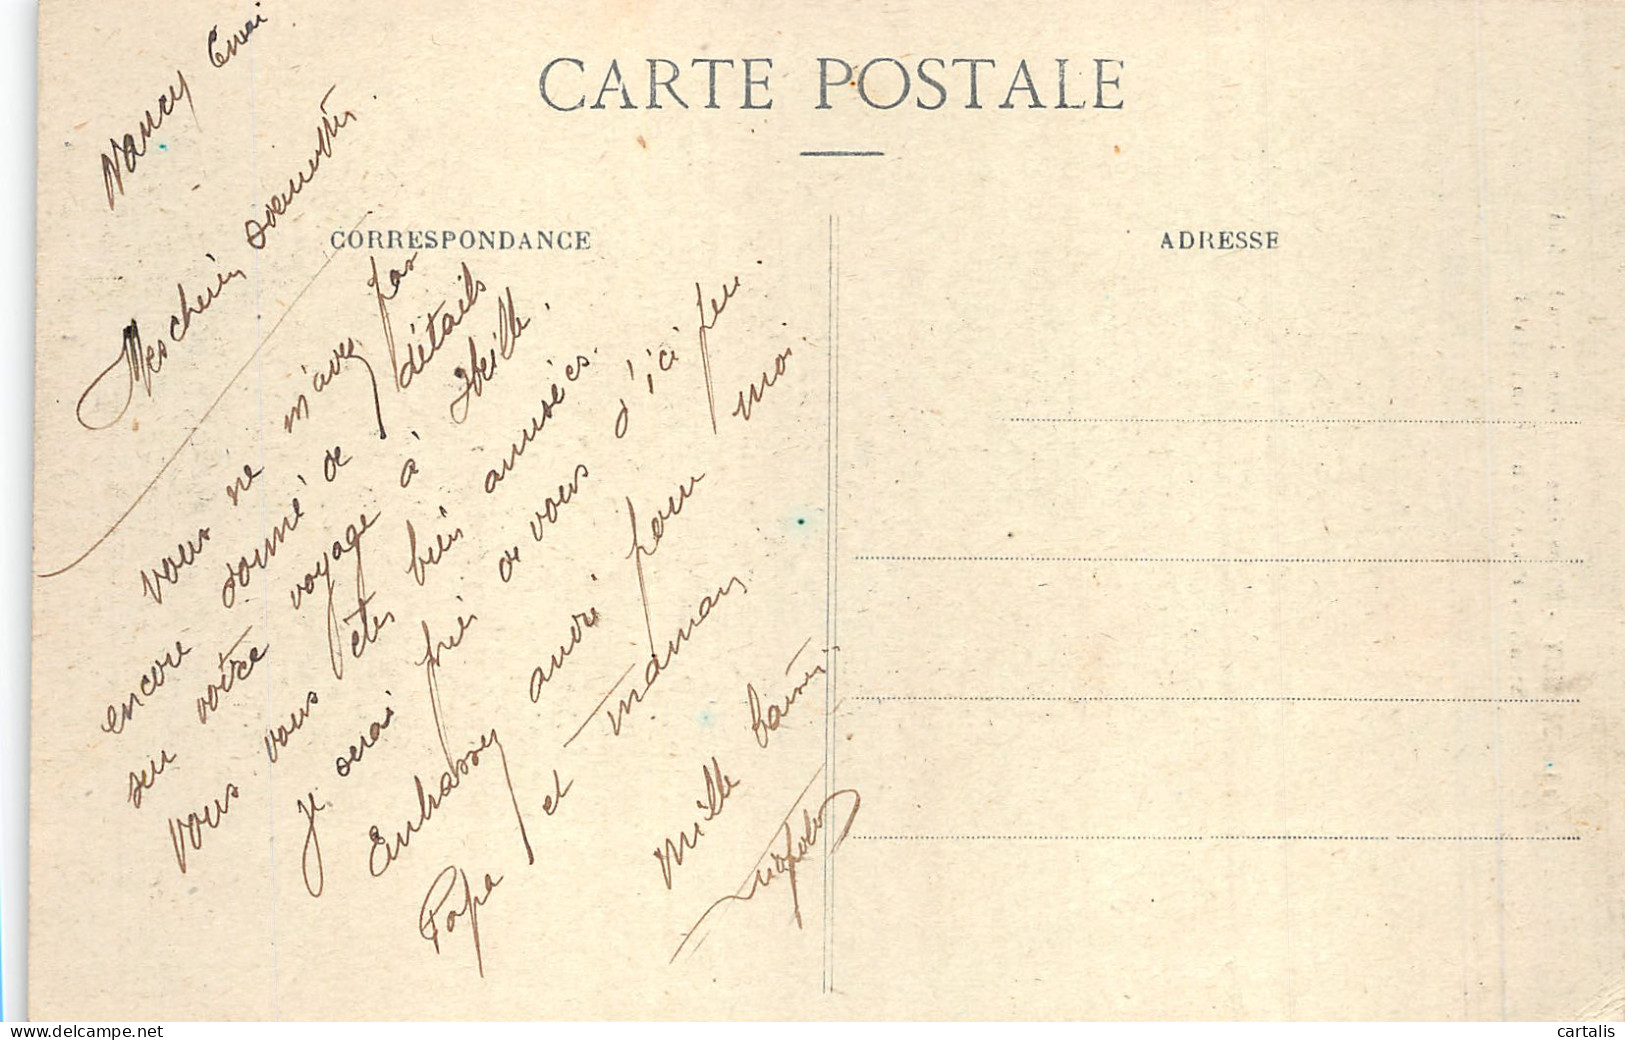 CARTE POSTALE
CORRESPONDANCE
ADRESSE
Nancy 6 mai
Mes chéries
vous ne m'avez pas
encore donné de détails
sur votre voyage à
Vous vous êtes bien amusées.
je serai près de vous d'ici peu.
Embrassez aussi pour moi.
Papa et maman
Mille baisers
cartalis